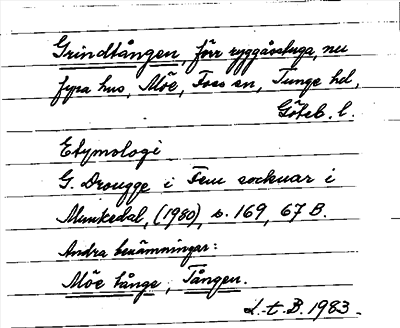 Grindtången, förr ryggåsstuga, nu
fyra hus, Möe, Foss sn, Tunge hd,
Göteb. l.
Etymologi
G. Drougge i Fem socknar i
Munkedal, (1980), s. 169, 67 B.
Andra benämningar:
Möe tånge, Tången.
L.t.B. 1983.